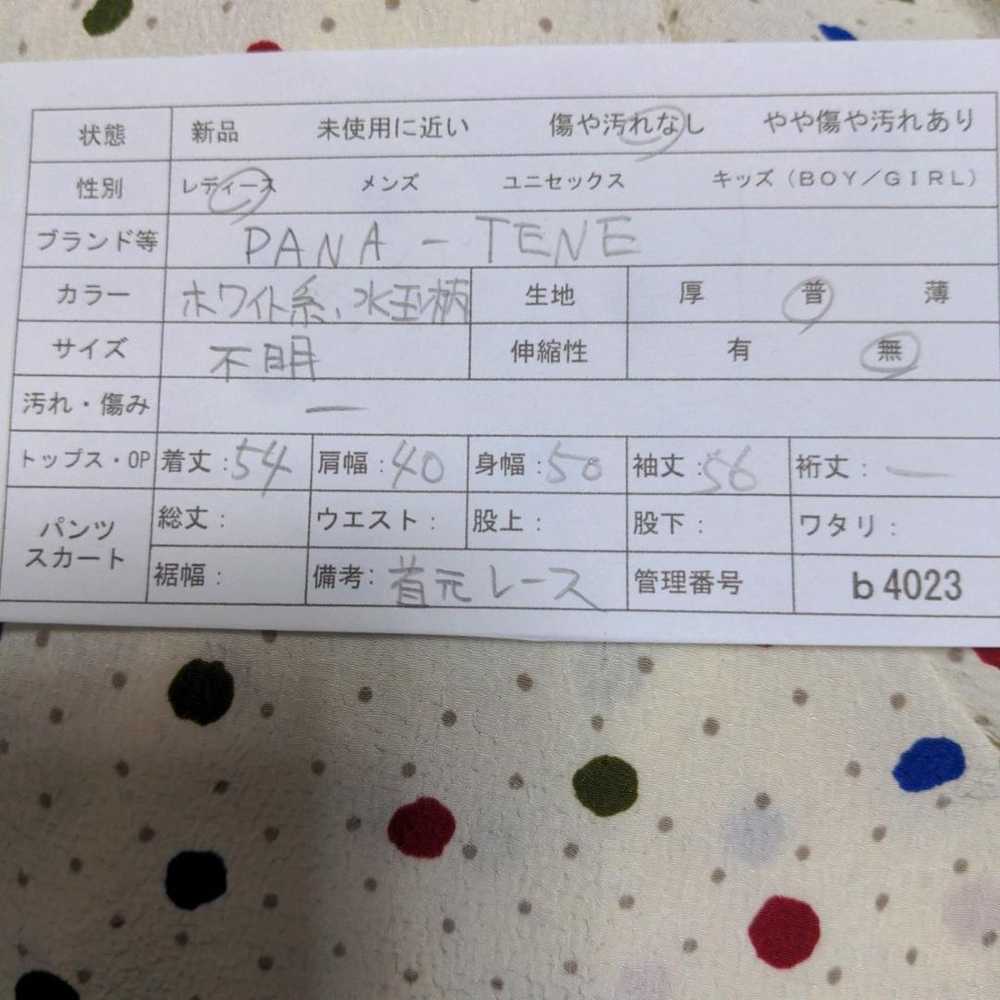 状態 新品 未使用に近い 傷や汚れなし やや傷や汚れあり
性別 レディース メンズ ユニセックス キッズ(BOY/GIRL)
ブランド等 PANA - TENE
カラー ホワイト系、水玉柄 生地 厚 普 薄
サイズ 不明 伸縮性 有 無
汚れ・傷み ー
トップス・OP 着丈:54 肩幅:40 身幅:50 袖丈:56 裄丈:ー
パンツ スカート 総丈: ウエスト: 股上: 股下: ワタリ:
裾幅: 備考:首元レース 管理番号 b4023